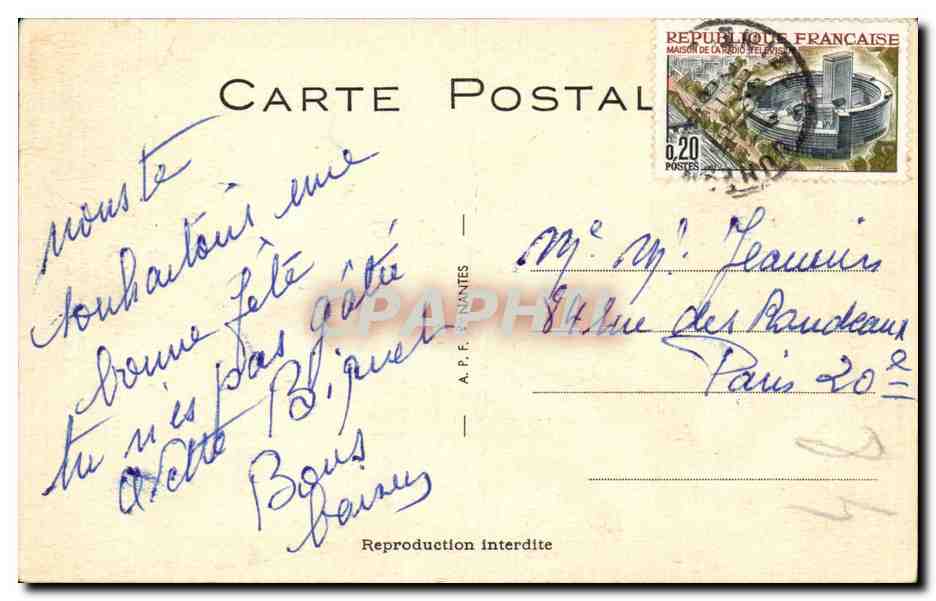 CARTE POSTAL
REPUBLIQUE FRANCAISE
MAISON DE LA RADIO-TELEVIS
0,20
POSTES
nous te
souhaitons une
bonne fête
tu n'es pas gâtée
Bons
baisers
A. P. F. NANTES
CPAPHIL
Me Mr Jeannin
84 rue des Rondeaux
Paris 20e
Reproduction interdite